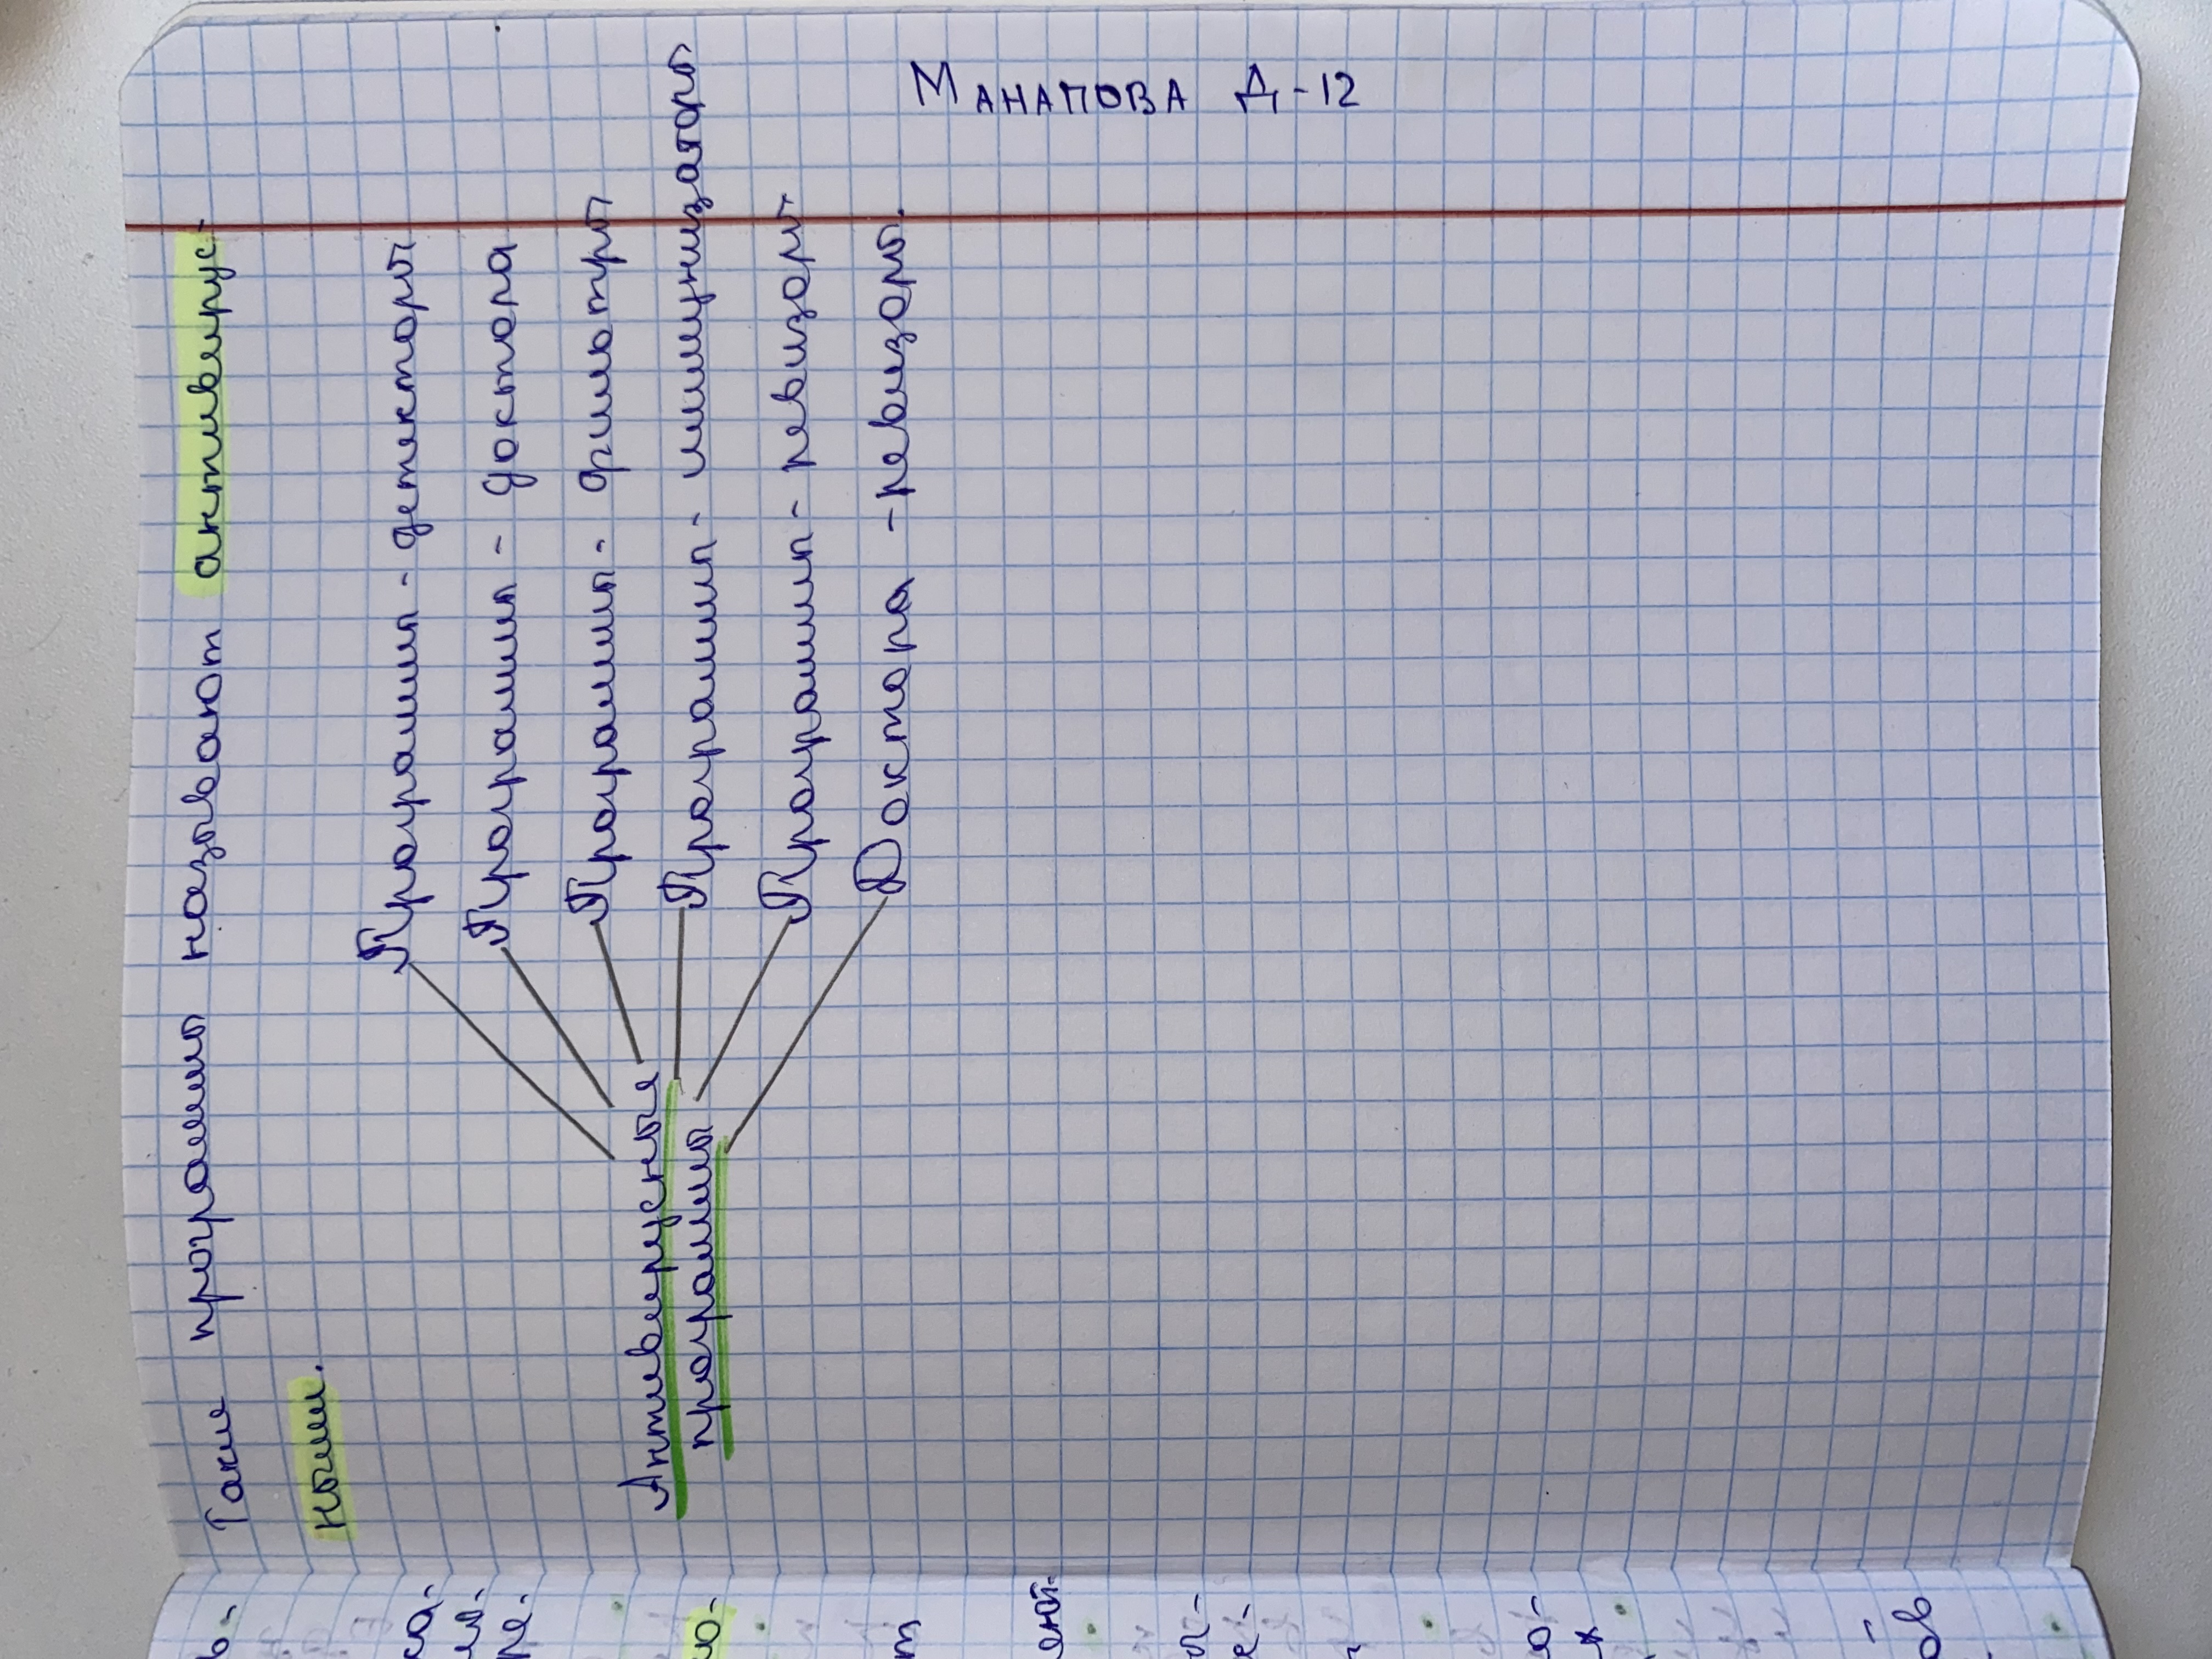 Такие программы называют антивирус-
ными.
Программы - детекторы
Программы - доктора
Программы - фильтры
Антивирусные
программы
Программы - иммунизаторы
Программы - ревизоры
Доктора - ревизоры.
Манапова Д-12